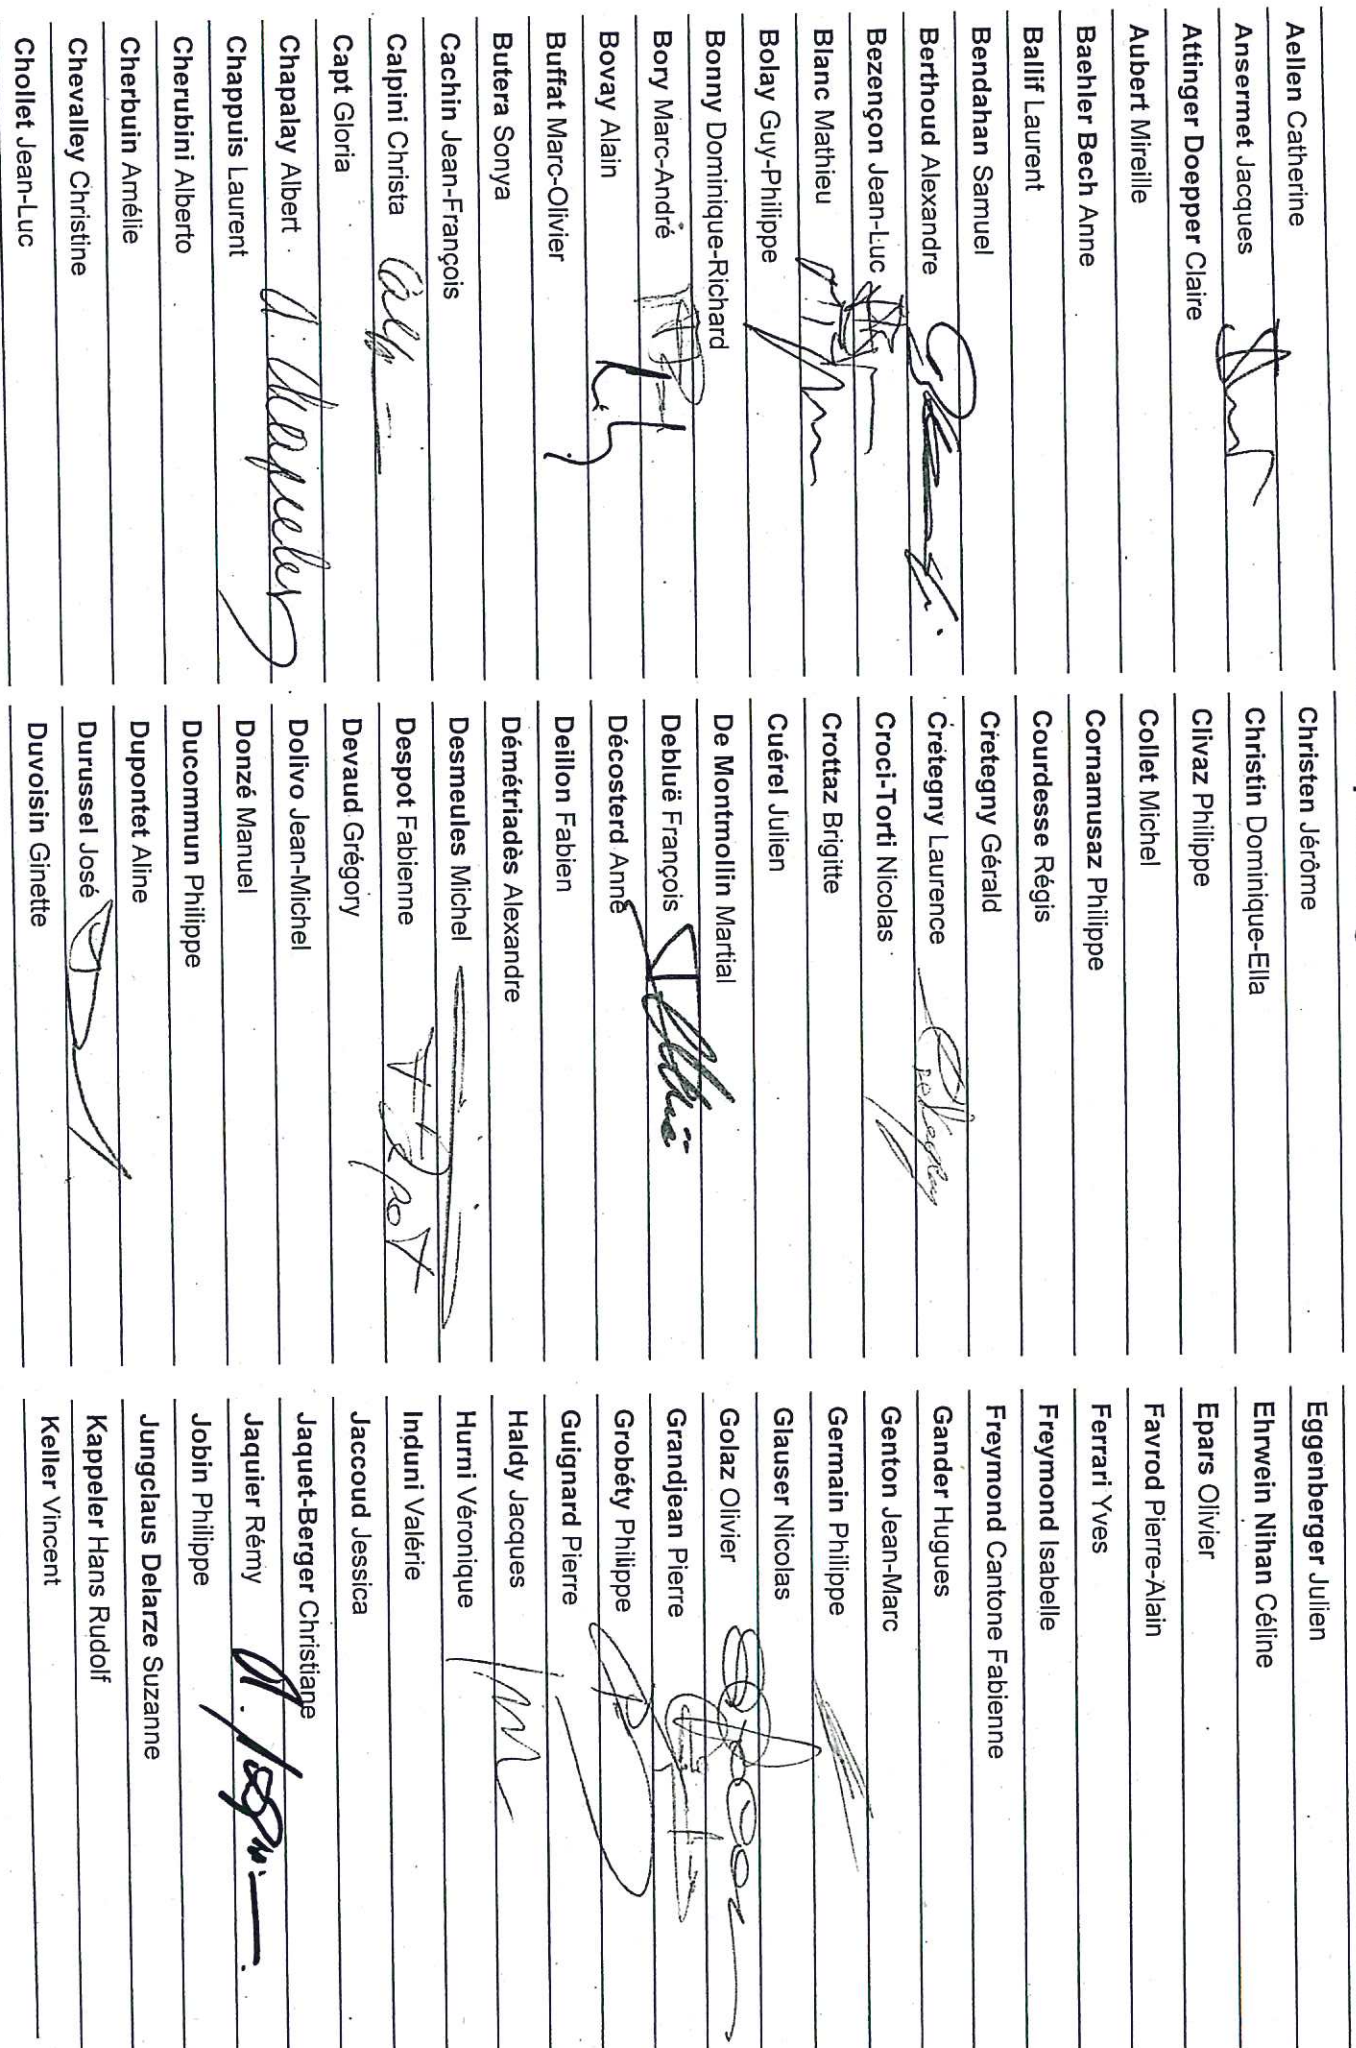 Aellen Catherine
Ansermet Jacques
Attinger Doepper Claire
Aubert Mireille
Baehler Bech Anne
Ballif Laurent
Bendahan Samuel
Berthoud Alexandre
Bezençon Jean-Luc
Blanc Mathieu
Bolay Guy-Philippe
Bonny Dominique-Richard
Bory Marc-André
Bovay Alain
Buffat Marc-Olivier
Butera Sonya
Cachin Jean-François
Calpini Christa
Capt Gloria
Chapalay Albert
A. Chapalay
Chappuis Laurent
Cherubini Alberto
Cherbuin Amélie
Chevalley Christine
Chollet Jean-Luc
Christen Jérôme
Christin Dominique-Ella
Clivaz Philippe
Collet Michel
Cornamusaz Philippe
Courdesse Régis
Cretegny Gérald
Cretegny Laurence
Croci-Torti Nicolas
Crottaz Brigitte
Cuérel Julien
De Montmollin Martial
Debluë François
Décosterd Anne
Deillon Fabien
Démétriadès Alexandre
Desmeules Michel
Despot Fabienne
Devaud Grégory
Dolivo Jean-Michel
Donzé Manuel
Ducommun Philippe
Dupontet Aline
Durussel José
Duvoisin Ginette
Eggenberger Julien
Ehrwein Nihan Céline
Epars Olivier
Favrod Pierre-Alain
Ferrari Yves
Freymond Isabelle
Freymond Cantone Fabienne
Gander Hugues
Genton Jean-Marc
Germain Philippe
Glauser Nicolas
Golaz Olivier
Grandjean Pierre
Grobéty Philippe
Guignard Pierre
Haldy Jacques
Hurni Véronique
Induni Valérie
Jaccoud Jessica
Jaquet-Berger Christiane
Jaquier Rémy
Jobin Philippe
Jungclaus Delarze Suzanne
Kappeler Hans Rudolf
Keller Vincent